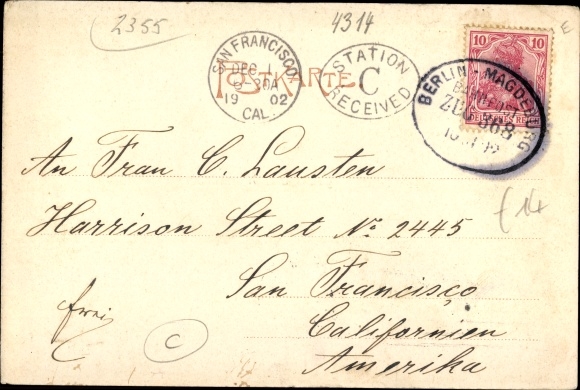 2355
4314
E
SAN FRANCISCO
DEC 1
19 02
CAL.
STATION
C
RECEIVED
POSTKARTE.
10 10
DEUTSCHES REICH
BERLIN - MAGDEBURG
BAHNPOST
ZUG 368
An Frau C. Lausten
£14
Harrison Street No. 2445
San Francisço
frei
Californien
C
Amerika